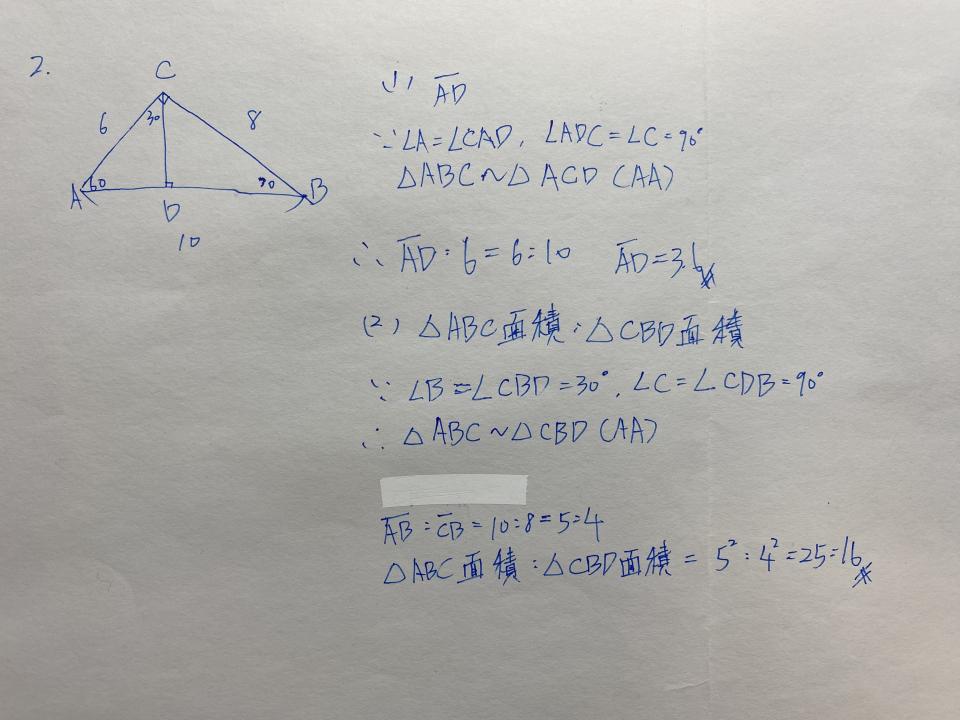 2.
C
6
30
8
A
60
30
B
D
10
(1) AD
∵∠A=∠CAD, ∠ADC=∠C=90°
△ABC~△ACD (AA)
∴ AD:6=6:10 AD=3.6
(2) △ABC面積:△CBD面積
∵ ∠B=∠CBD=30°, ∠C=∠CDB=90°
∴ △ABC~△CBD (AA)
AB:CB=10:8=5:4
△ABC面積:△CBD面積=5²:4²=25:16